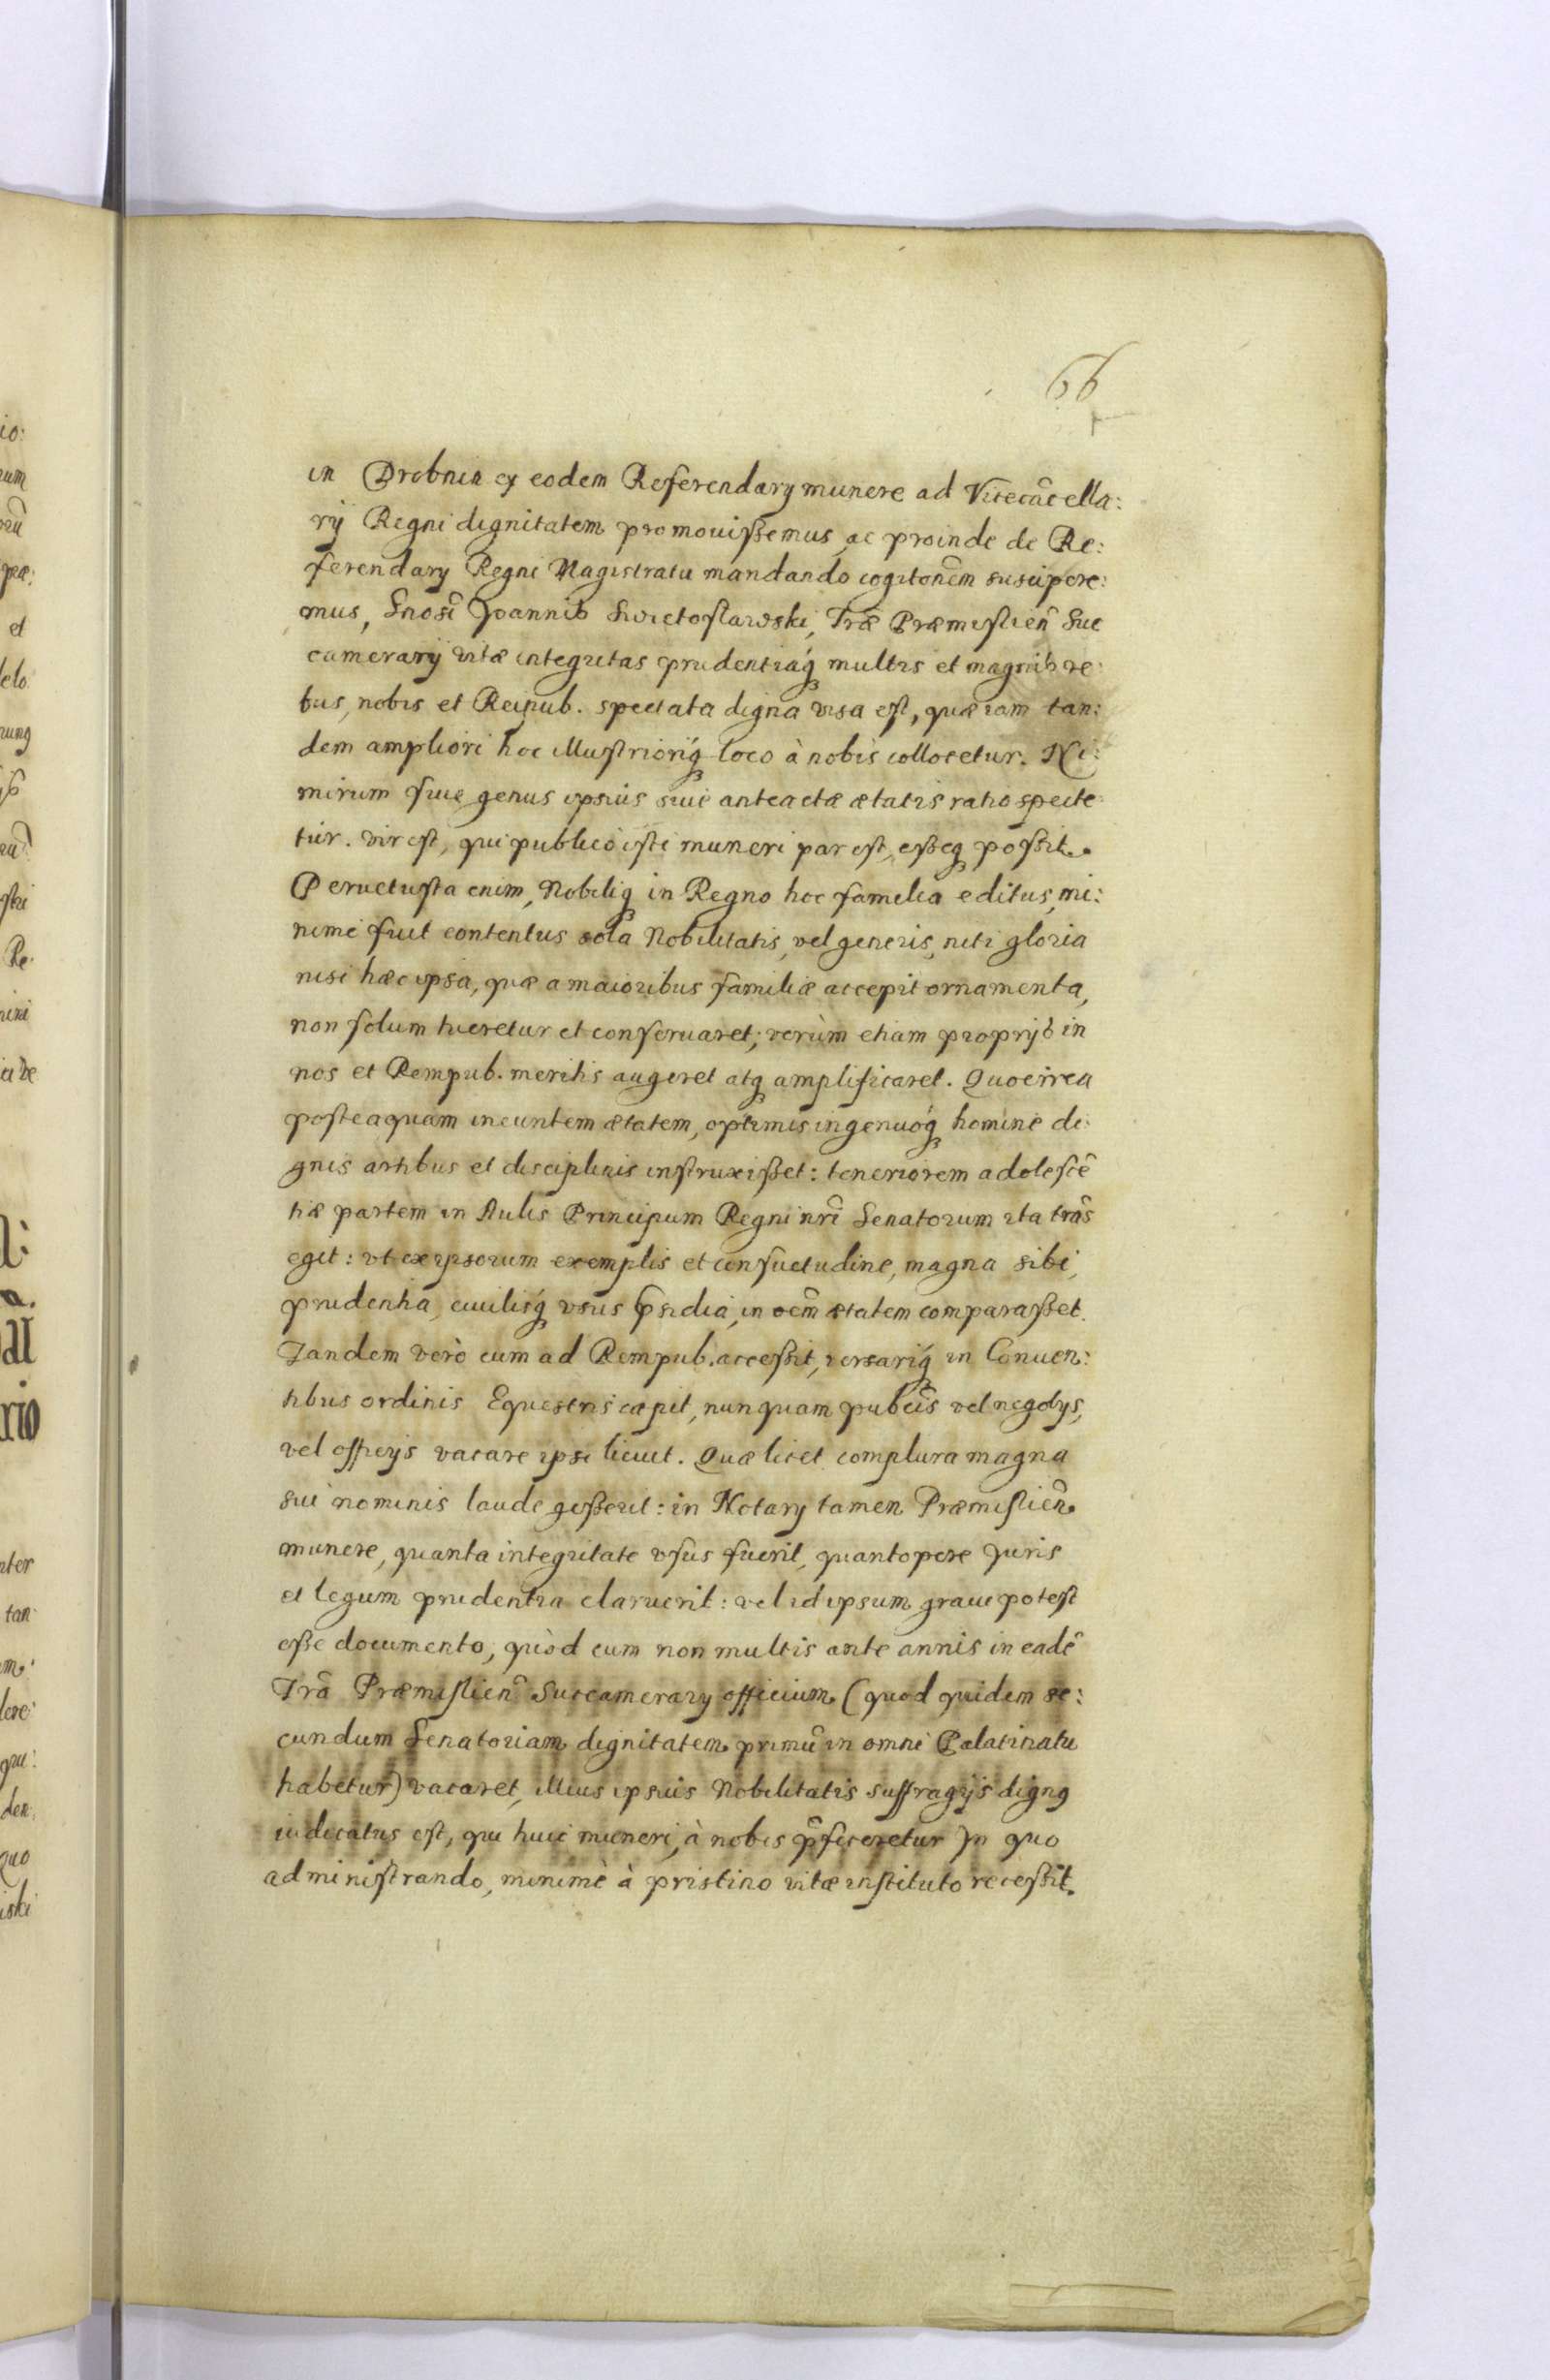 66
in Drobnin ex eodem Referendarÿ munere ad Vicecãcella:
rÿ Regni dignitatem promouißemus, ac proinde de Re:
ferendarÿ Regni Magistratu mandando cogitonẽm suscipere:
mus, Gnosi Joannis Swietoslawski, Træ Præmisliẽn Suc
camerarÿ vitæ integritas prudentiaq́ multis et magnis re:
bus, nobis et Reipub. spectata digna visa est, quæ iam tan:
dem ampliori hoc illustrioriq́ loco à nobis collocetur. Ni:
mirum siue genus ipsius siue anteactæ ætatis ratio specte:
tur. vir est, qui publico isti muneri par est, eßeq possit.
Peruetusta enim, Nobiliq in Regno hoc familia editus, mi:
nime fuit contentus sola Nobilitatis, vel generis, niti gloria
nisi hæc ipsa, quæ a maioribus familiæ accepit ornamenta,
non solum tueretur et conseruaret; verùm etiam proprÿs in
nos et Rempub. meritis augeret atq amplificaret. Quocirca
posteaquam ineuntem ætatem, optimis ingenuoq́ homine di:
gnis artibus et disciplinis instruxißet: teneriorem adolescẽ
tiæ partem in Aulis Principum Regni nrĩ Senatorum ita trãs
egit: vt ex ipsorum exemplis et consuetudine, magna sibi,
prudentia, ciuilisq́ vsus pˢidia, in oẽm ætatem comparaßet.
Tandem verò cum ad Rempub. acceßit, versariq́ in Conuen:
tibus ordinis Equestris cæpit, nunquam pubcĩs vel negotÿs,
vel officÿs vacare ipsi licuit. Quæ licet complura magna
sui nominis laude geßerit: in Notarÿ tamen Præmisliẽn
munere, quanta integritate vsus fuerit, quantopere Juris
et legum prudentia claruerit: vel id ipsum graui potest
eße documento, quòd cum non multis ante annis in eadẽ
Trã Præmisliẽn Succamerarÿ officium (quod quidem se:
cundum Senatoriam dignitatem primũ in omni Palatinatu
habetur) vacaret, illius ipsius Nobilitatis suffragÿs dignꝰ
iudicatus est, qui huic muneri, à nobis p̃ficeretur Jn quo
administrando, minimè à pristino vitæ instituto recessit.